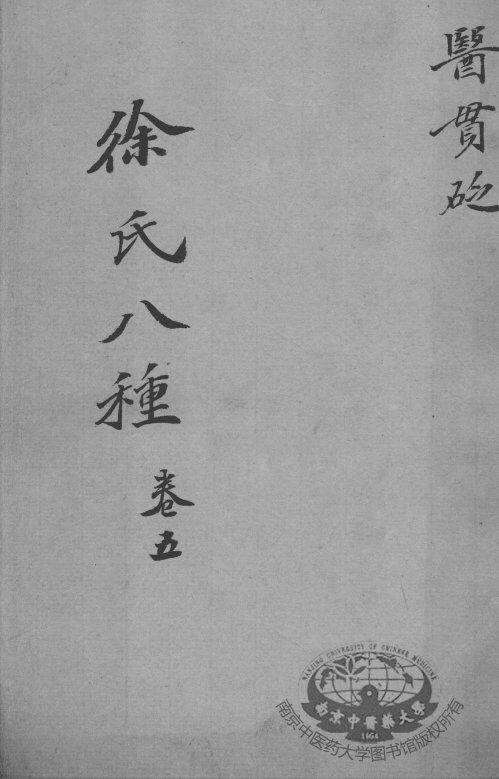 醫貫砭
徐氏八種
卷五
NANJING UNIVERSITY OF CHINESE MEDICINE
南京中醫藥大學
1954
南京中医药大学图书馆版权所有